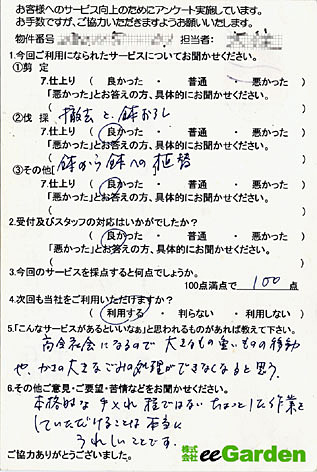 お客様へのサービス向上のためにアンケート実施しています。
お手数ですが、ご協力いただきますようお願いいたします。
物件番号 担当者:
1.今回ご利用になられたサービスについてお聞かせください。
①剪 定
7.仕上り ( 良かった ・ 普通 ・ 悪かった )
「悪かった」とお答えの方、具体的にお聞かせください。
(
②伐 採 撤去と、鉢おろし
7.仕上り ( 良かった ・ 普通 ・ 悪かった )
「悪かった」とお答えの方、具体的にお聞かせください。
(
③その他[ 鉢から鉢への植替
7.仕上り ( 良かった ・ 普通 ・ 悪かった )
「悪かった」とお答えの方、具体的にお聞かせください。
(
2.受付及びスタッフの対応はいかがでしたか?
( 良かった ・ 普通 ・ 悪かった )
「悪かった」とお答えの方、具体的にお聞かせください。
(
3.今回のサービスを採点すると何点でしょうか。
100点満点で 100 点
4.次回も当社をご利用いただけますか?
( 利用する ・ 判らない ・ 利用しない )
5.「こんなサービスがあるといいなぁ」と思われるものがあれば教えて下さい。
高令社会になるので大きなもの重いものの移動
や、かさの大きなごみの処理ができなくなると思う.
6.その他ご意見・ご要望・苦情などをお聞かせください。
本格的な手入れ程ではないちょっとした作業を
していただけることは本当に
うれしいことです.
ご協力ありがとうございました。
株式会社 eeGarden